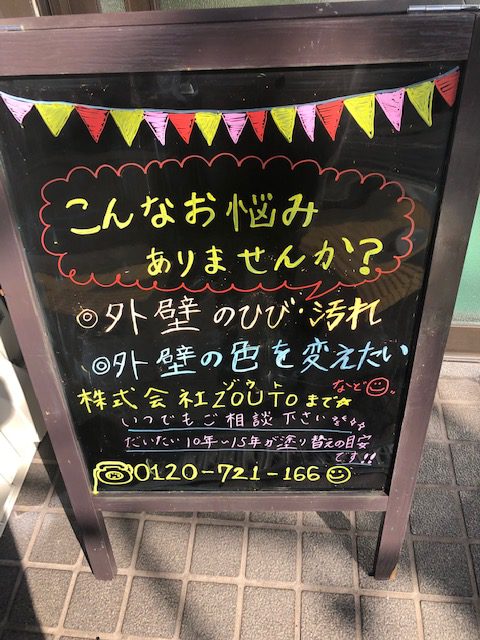 こんなお悩み
ありませんか?
◎外壁のひび・汚れ
◎外壁の色を変えたい
など
株式会社ZOUTOまで☆
ゾウト
いつでもご相談下さい
だいたい10年~15年が塗り替えの目安
です!!
0120-721-166